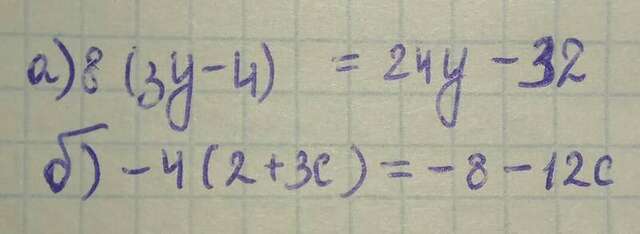 а) 8 (3y-4) = 24y - 32
б) - 4 (2+3c) = - 8 - 12c